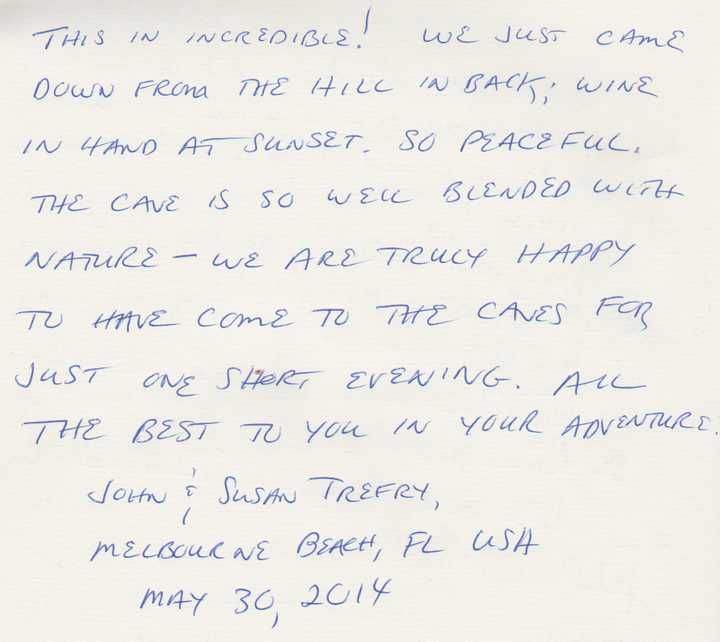 THIS IN INCREDIBLE! WE JUST CAME
DOWN FROM THE HILL IN BACK; WINE
IN HAND AT SUNSET. SO PEACEFUL.
THE CAVE IS SO WELL BLENDED WITH
NATURE - WE ARE TRULY HAPPY
TO HAVE COME TO THE CAVES FOR
JUST ONE SHORT EVENING. ALL
THE BEST TO YOU IN YOUR ADVENTURE.
JOHN & SUSAN TREFRY,
MELBOURNE BEACH, FL USA
MAY 30, 2014